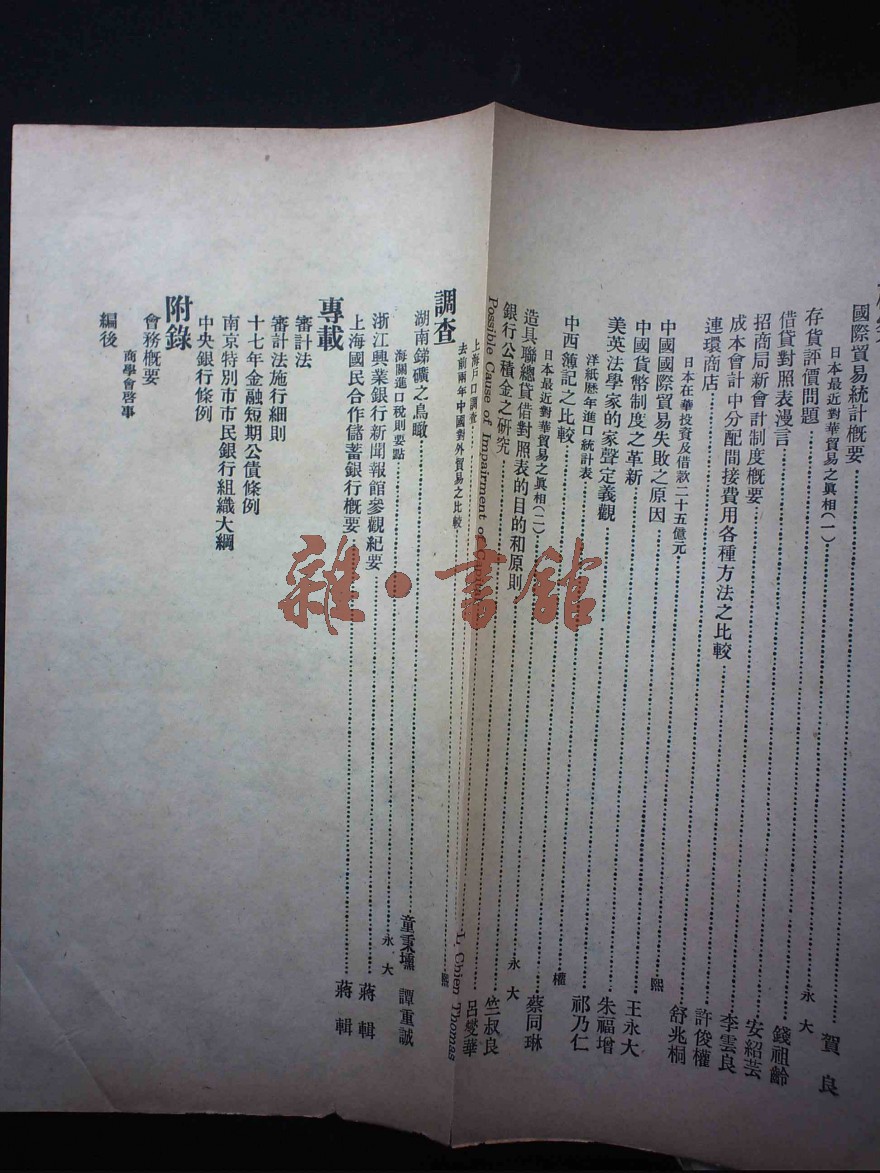 國際貿易統計概要……賀良
日本最近對華貿易之眞相(一)……永大
存貨評價問題……錢祖齡
借貸對照表漫言……安紹芸
招商局新會計制度概要……李雲良
成本會計中分配間接費用各種方法之比較……許俊權
連環商店……舒兆桐
日本在華投資及借款二十五億元……熙
中國國際貿易失敗之原因……王永大
中國貨幣制度之革新……朱福增
美英法學家的家聲定義觀……祁乃仁
洋紙歷年進口統計表……權
中西簿記之比較……蔡同琳
日本最近對華貿易之眞相(二)……永大
造具聯總貸借對照表的目的和原則……竺叔良
銀行公積金之研究……呂燮華
Possible Cause of Impairment of……L. Chien Thomas
上海戶口調查……
去前兩年中國對外貿易之比較……熙
調查
湖南銻礦之鳥瞰……童秉壎 譚重誠
海關進口稅則要點……永大
浙江興業銀行新聞報館參觀紀要……蔣輯
上海國民合作儲蓄銀行概要……蔣輯
專載
審計法
審計法施行細則
十七年金融短期公債條例
南京特別市市民銀行組織大綱
中央銀行條例
附錄
會務概要
商學會啓事
編後
雜·書館